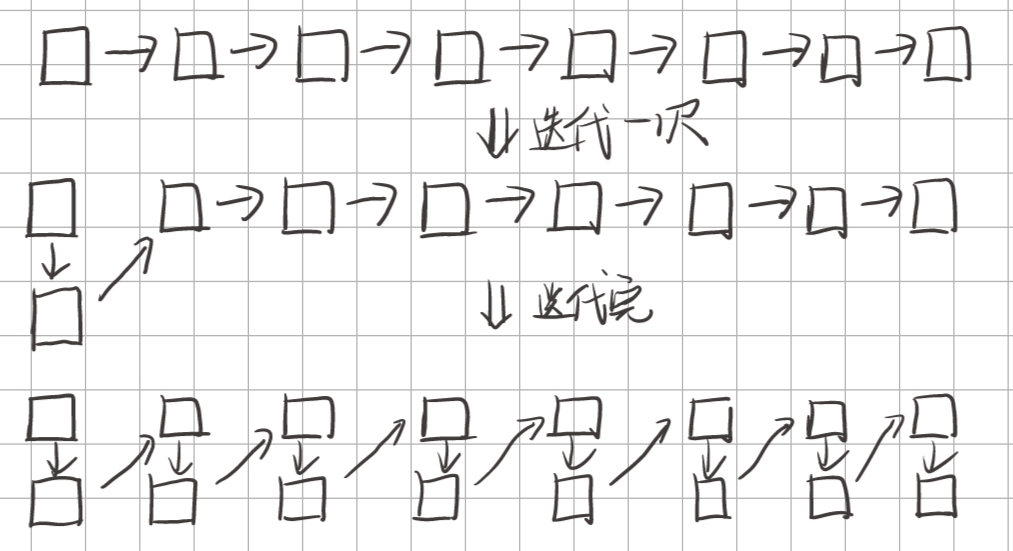 迭代一次
迭代完